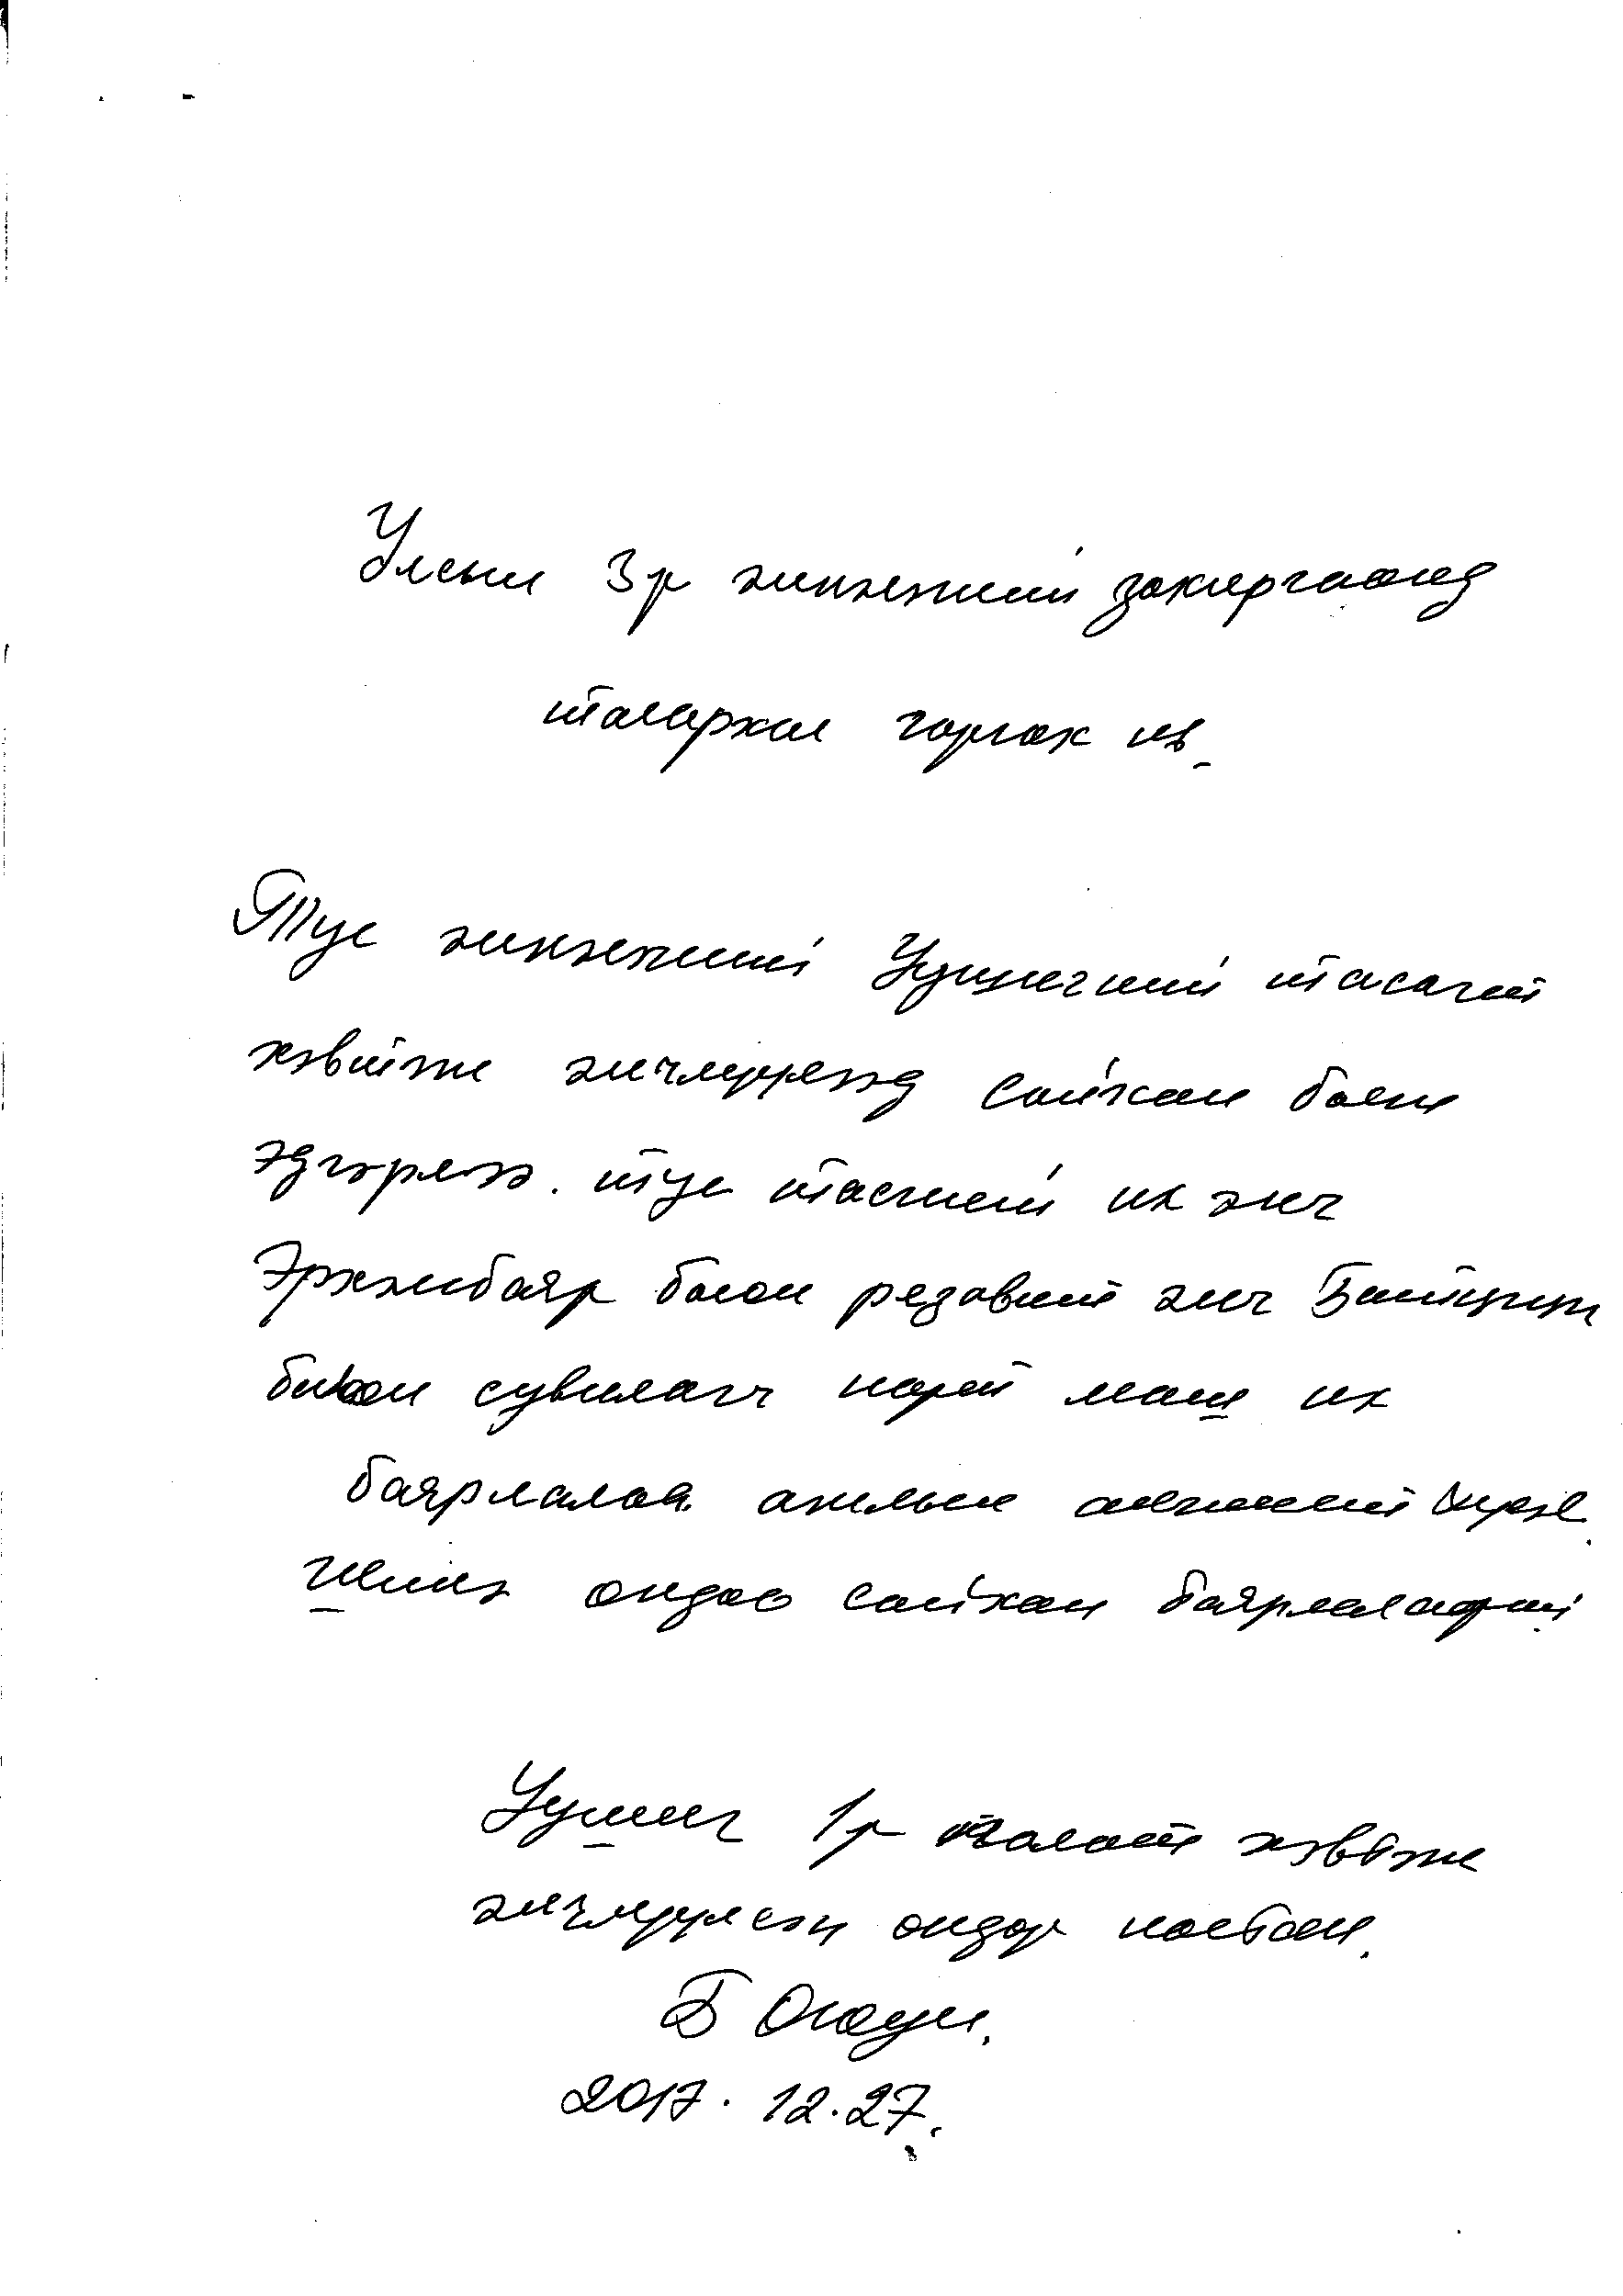 Улсын 3р эмнэлгийн захиргаанд
талархал гаргах нь
Тус эмнэлгийн Уушигний тасагт
хэвтэж эмчлүүлээд сайхан болж
эдгэрлээ. тус тасгийн их эмч
Эрхэмбаяр болон резидент эмч
болон сувилагч нарт маш их
баярлалаа. ажлын амжилт хүсье
Шинэ ондоо сайхан баярлаарай
Уушиг 1р палатт хэвтэж
эмчлүүлсэн өндөр настан.
Б
2017. 12. 27.